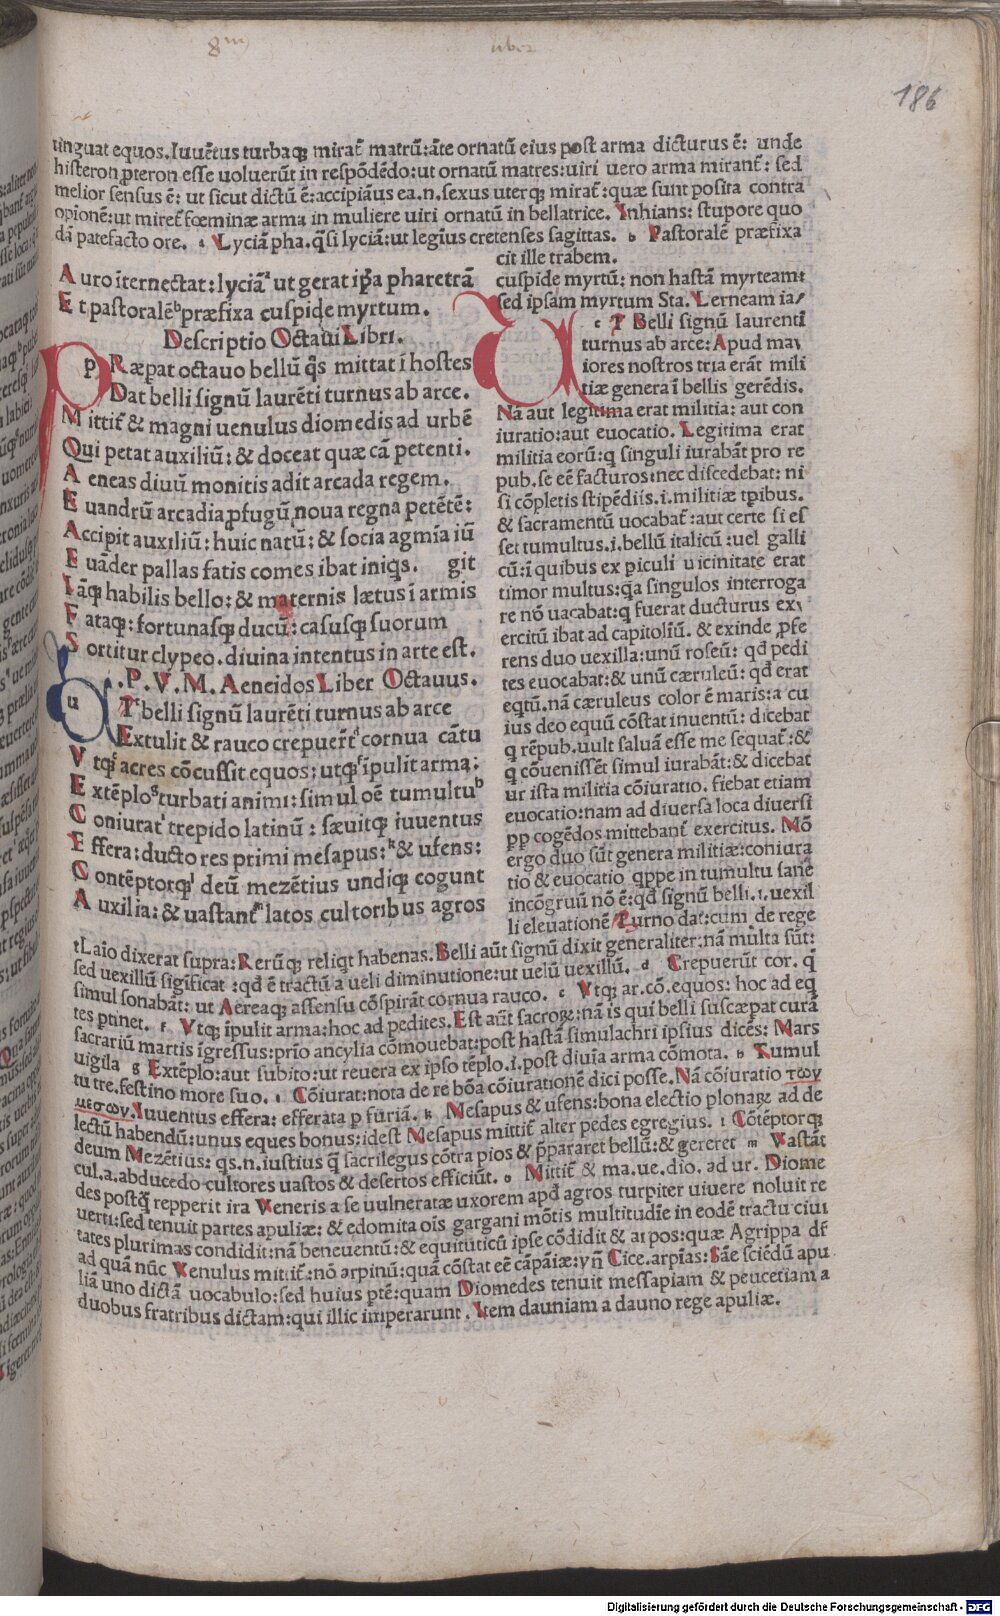 8um liber
186
tinguat equos. Iuuētus turbaqꝫ mirat̄ matrū: āte ornatū eius post arma dicturus ē: unde
histeron ꝓteron esse uoluerūt in respōdēdo: ut ornatū matres: uiri uero arma mirant̄: sed
melior sensus ē: ut sicut dictū ē: accipiāus ea .n. sexus uterqꝫ mirat̄: quæ sunt posita contra
opionē: ut miret̄ fœminæ arma in muliere uiri ornatū in bellatrice. Ynhians: stupore quo
dā patefacto ore. a Lyciā pha. q̄si lyciā: ut legius cretenses sagittas. b Pastoralē præfixa
A uro īternectat: lyciāᵃ ut gerat ip̄a pharetrā
E t pastoralēᵇ præfixa cuspide myrtum.
Descriptio Octaui Libri.
p Ræpat octauo bellū q̄s mittat ī hostes
Dat belli signū laurēti turnus ab arce.
M ittit̄ & magni uenulus diomedis ad urbē
Qui petat auxiliū: & doceat quæ cā petenti.
A eneas diuū monitis adit arcada regem.
E uandrū arcadia ꝓfugū noua regna petētē:
A ccipit auxiliū: huic natū: & socia agmīa iū
E uāder pallas fatis comes ibat iniqs. git
I āqꝫ habilis bello: & maternis lætus ī armis
F ataqꝫ: fortunasqꝫ ducū: casusqꝫ suorum
S ortitur clypeo. diuina intentus in arte est.
.P.V.M. Aeneidos Liber Octauus.
u T belli signū laurēti turnus ab arce
Extulit & rauco crepuer̄t cornua cātu
V tqꝫ acres cōcussit equos: utqꝫ īpulit arma:
E xtēplo turbati animi: simul oē tumultuᵇ
C oniurat trepido latinū: sæuitqꝫ iuuentus
E ffera: ductores primi mesapus:ᵏ & ufens:
C ontēptorqꝫˡ deū mezētius undiqꝫ cogunt
A uxilia: & uastantᵐ latos cultoribus agros
cit ille trabem.
cuspide myrtū: non hastā myrteam:
sed ipsam myrtum Sta. Lerneam ia/
c T Belli signū laurenti
turnus ab arce: Apud ma
iores nostros tria erāt mili
tiæ genera ī bellis gerēdis.
Nā aut legitima erat militia: aut con
iuratio: aut euocatio. Legitima erat
militia eorū: q singuli iurabāt pro re
pub. se eē facturos: nec discedebat: ni
si cōpletis stipēdiis .i. militiæ tp̄ibus.
& sacramentū uocabat̄: aut certe si es
set tumultus .i. bellū italicū: uel galli
cū: ī quibus ex piculi uicinitate erat
timor multus: qa singulos interroga
re nō uacabat: q fuerat ducturus ex
ercitū ibat ad capitoliū. & exinde ꝓfe
rens duo uexilla: unū roseū: qd̄ pedi
tes euocabat: & unū cæruleū: qd̄ erat
eqtū. nā cæruleus color ē maris: a cu
ius deo equū cōstat inuentū: dicebat
q rēpub. uult saluā esse me sequat̄: &
q cōuenissēt simul iurabāt: & dicebat
ur ista militia cōiuratio. fiebat etiam
euocatio: nam ad diuersa loca diuersi
pp cogēdos mittebant̄ exercitus. Nō
ergo duo sūt genera militiæ: coniura
tio & euocatio qppe in tumultu sane
incōgruū nō ē: qd̄ signū belli .i. uexil
li eleuationē Turno dat: cum de rege
tLaio dixerat supra: Rerūqꝫ reliqt habenas. Belli aūt signū dixit generaliter: nā multa sūt:
sed uexillū sigificat: qd̄ ē tractū a ueli diminutione: ut uelū uexillū. d Crepuerūt cor. q̄
simul sonabāt: ut Aereaqꝫ assensu cōspirāt cornua rauco. e Vtqꝫ ar. cō. equos: hoc ad eq
tes ptinet. f Vtqꝫ īpulit arma: hoc ad pedites. Est aūt sacroꝝ: nā is qui belli suscæpat curā
sacrariū martis īgressus: prīo ancylia cōmouebat: post hastā simulachri ipsius dicēs: Mars
uigila g Extēplo: aut subito: ut reuera ex ipso tēplo .i. post diuīa arma cōmota. h Tumul
tu tre. festino more suo. i Cōiurat: nota de re bōa cōiurationē dici posse. Nā cōiuratio τεων
μεσων. Iuuentus effera: efferata p furiā. k Mesapus & ufens: bona electio plonage ad de
lectū habendū: unus eques bonus: idest Mesapus mittit̄ alter pedes egregius. l Cōtēptorqꝫ
deum Mezētius: qs .n. iustius q̄ sacrilegus cōtra pios & p̄pararet bellū: & gereret m Vastāt
cul. a. abducedo cultores uastos & desertos efficiūt. o Mittit̄ & ma. ue. dio. ad ur. Diome
des postq̄ repperit ira Veneris a se uulneratæ uxorem apd̄ agros turpiter uiuere noluit re
uerti: sed tenuit partes apuliæ: & edomita oīs gargani mōtis multitudīe in eodē tractu ciui
tates plurimas condidit: nā beneuentū: & equituticū ipse cōdidit & arpos: quæ Agrippa dr̄
ad quā nūc Venulus mittit̄: nō arpinū: quā cōstat eē cāpāiæ: yn̄ Cice. arpias: Sāe sciēdū apu
liā uno dictā uocabulo: sed huius ptē: quam Diomedes tenuit messapiam & peucetiam a
duobus fratribus dictam: qui illic imperarunt. Ytem dauniam a dauno rege apuliæ.
Digitalisierung gefördert durch die Deutsche Forschungsgemeinschaft - DFG